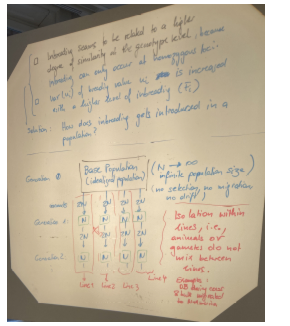 □ Inbreeding seems to be related to a higher
degree of similarity at the genotype level, because
inbreeding can only occur at homozygous loci
□ var(u) of breeding value ui is increased
with a higher level of inbreeding (Fi)
: How does inbreeding gets introduced in a
population?
Generation 0
Base Population
(idealized population)
(N → ∞
infinite population size)
(no selection, no migration
no drift)
2N 2N 2N 2N
Generation 1:
N N N N
2N 2N 2N 2N
Generation 2:
N N N N
Line 1 Line 2 Line 3 Line 4
Isolation within
lines, i.e.,
animals or
gametes do not
mix between
lines.
Example: